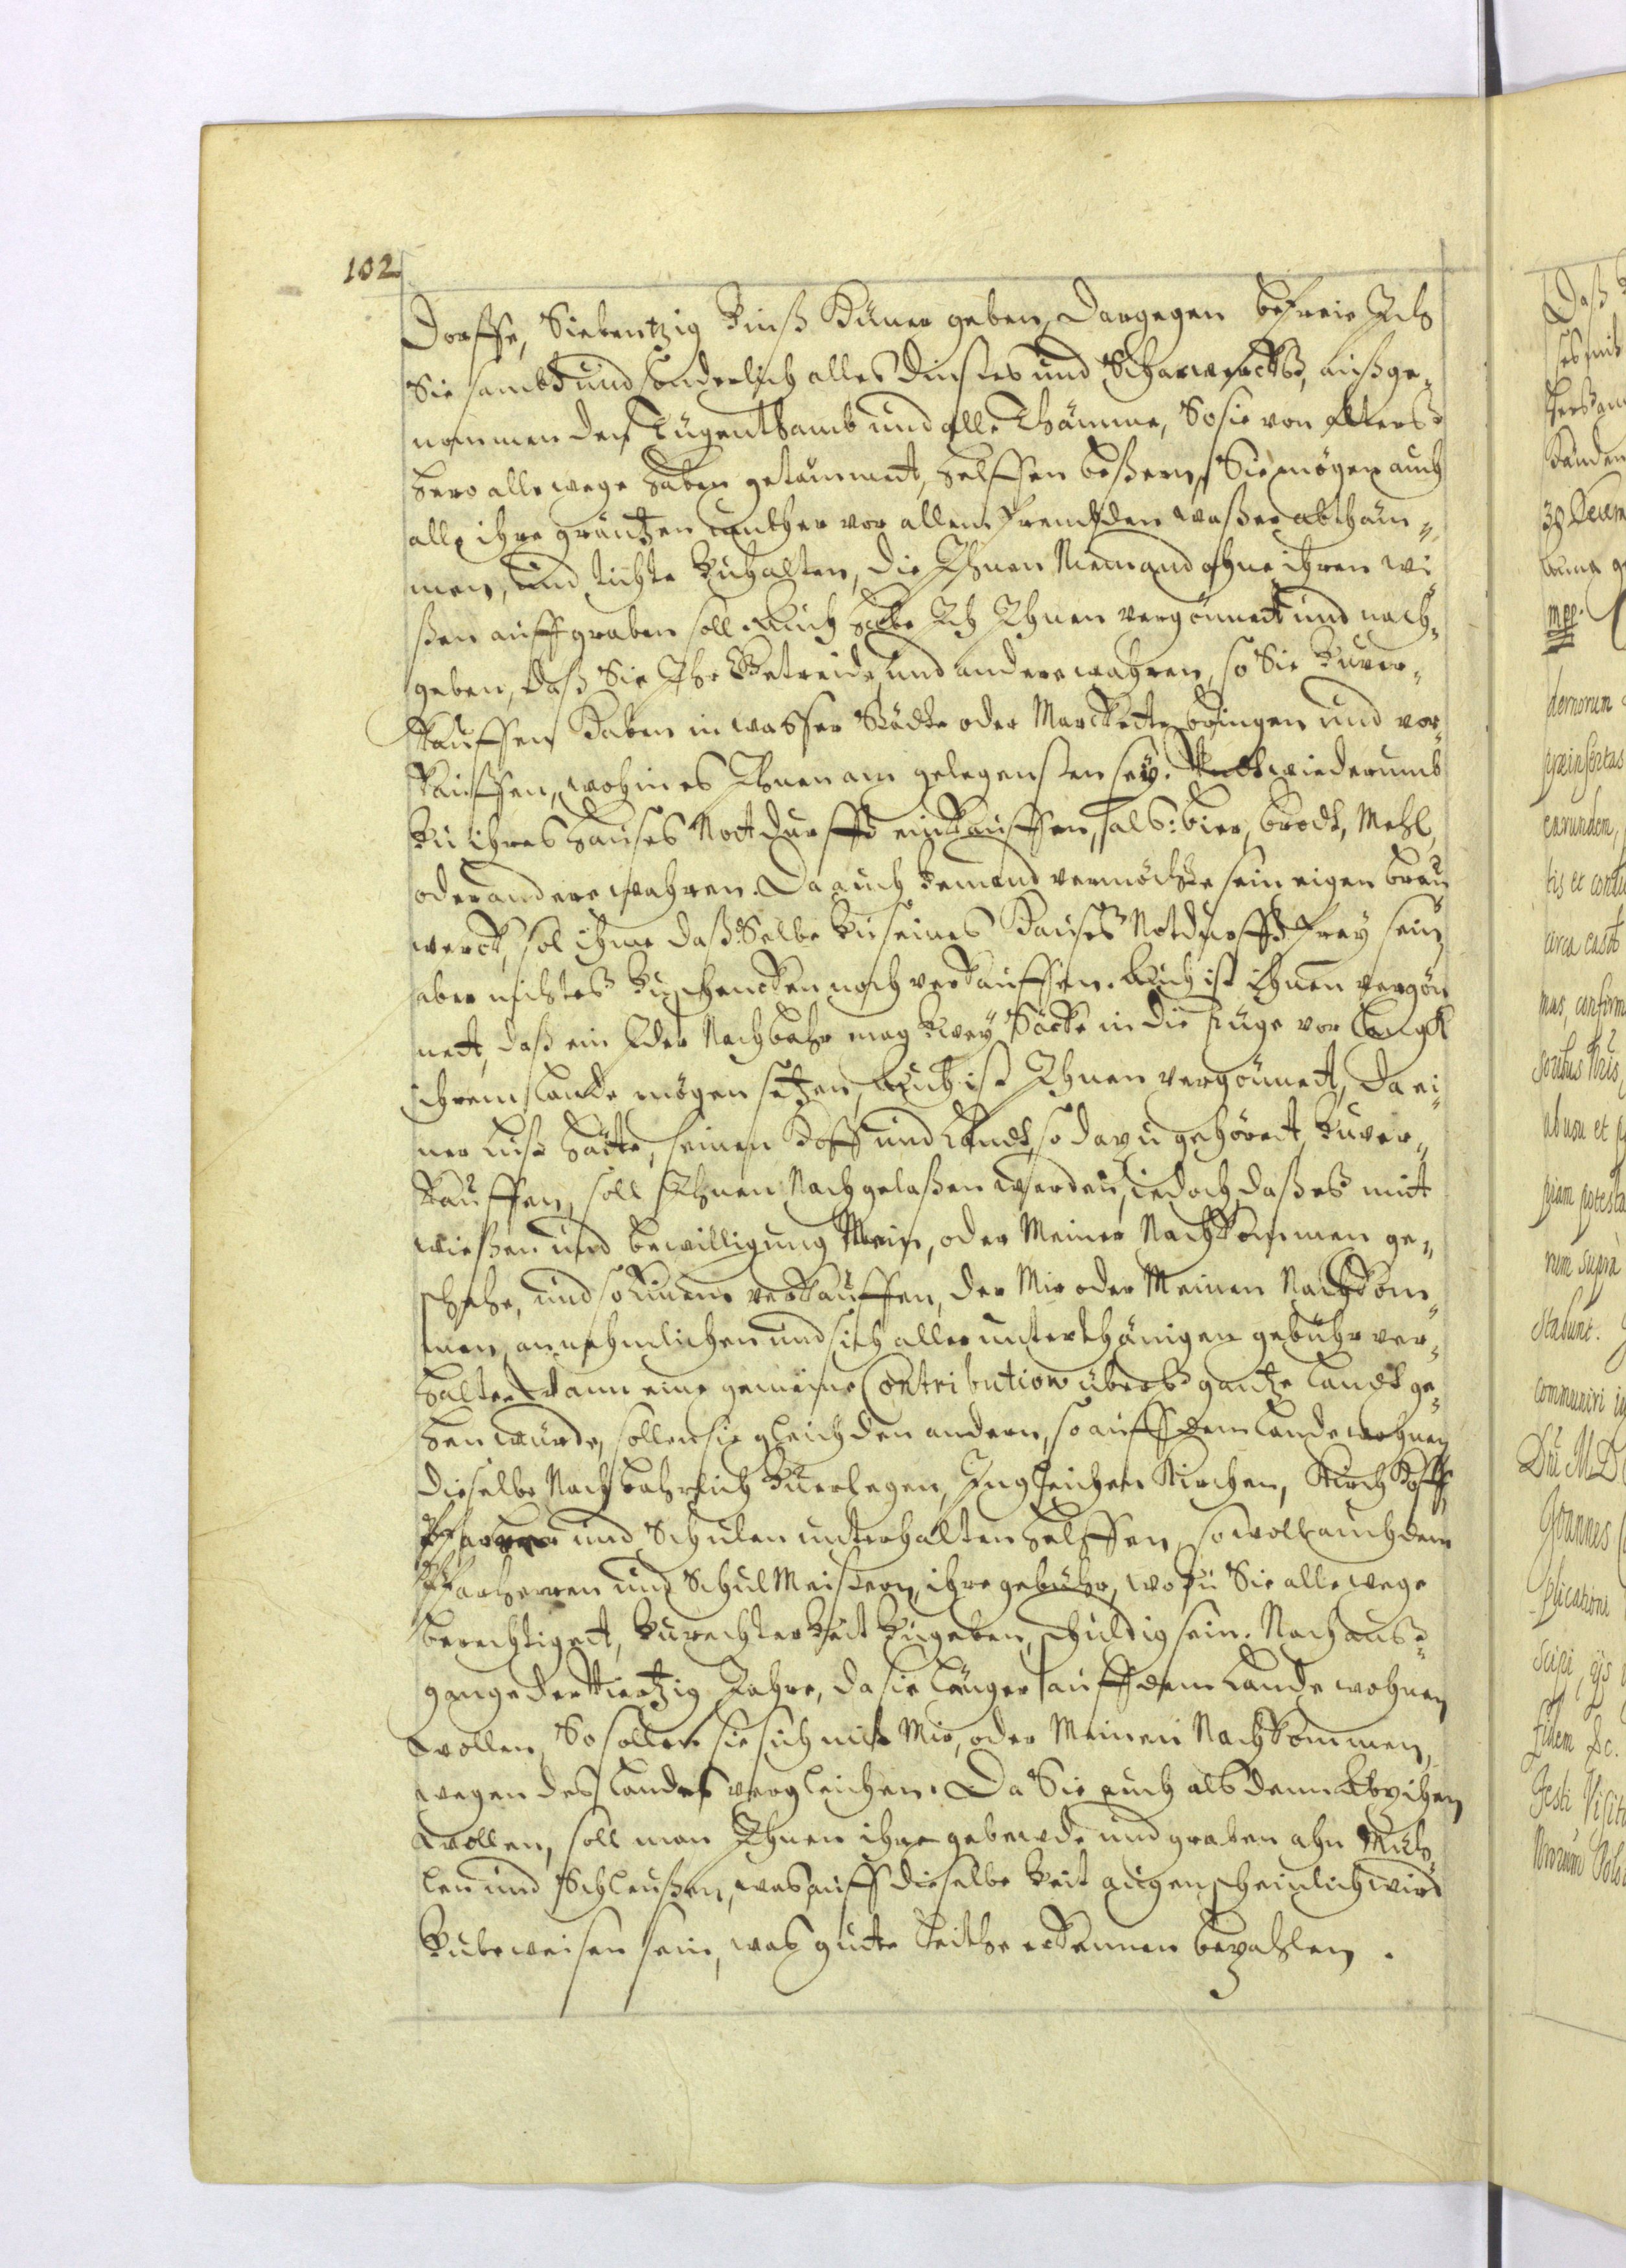 102
Dorffe, Siebentzig Zinß Hüner geben, dargegen befreie Ich
Sie sambt und sonderlich alles dinstes und Scharwercks, außge¬
nommen den Lügenthamb und alle Thämme, So sie von alters
hero allewege haben getämmet, helffen beßern, Sie mögen auch
alle ihre gräntzen vor allem frembden waßer abthäm¬
men, und tichte zuhalten, die Ihnen Niemand ohne ihren wi
ßen auffgraben soll. Auch habe Ich Ihnen vergönnett und nach¬
geben, daß Sie Ihr Getreide und andere wahren, so Sie zuver¬
kauffen haben in wasser Städte oder Marckette bringen und vor
kauffen, wohin es Ihnen am gelegensten sey. Auch wiederumb
zu ihres hauses Nottdurfft einkauffen, als: bier, brodt, Mehl,
oder andere wahren. Da auch Jemand vermöchte sein eigen breu
werck, sol ihme daßSelbe zu seines Hauses Notdurfft frey sein,
aber nichtes zu schencken noch verkauffen. Auch ist ihnen vergön
nett, daß ein Jder Nachbahr mag zwey Säcke in die Lüge vor langst
ihrem lande mögen setzen, Auch ist Ihnen vergönnett, da ei¬
ner lust hätte, seinen Hoff und Landt, so darzu gehörett, zuver¬
kauffen, soll Ihnen Nachgelaßen werden, iedoch daß es mitt
wießen und bewilligung Mein, oder Meiner Nachkommen ge¬
schehe, und so Einem verkauffen, der Mir oder Meinen Nachkom¬
men, annehmlichen und sich aller unterthänigen gebühr ver¬
halte. Wann eine gemeine Contribution übers gantze landt ge¬
hen würde, sollen sie gleich den andern, so auff dem lande wohnen
dieselbe Nachbahrlich zuerlegen, Ingleichen Kirchen, Kirchhoff,
Pfarren und Schulen unterhalten helffen, so woll auch dem
Pfarherren und SchulMeistern, ihre gebühr, wozu Sie allewege
berechtigett, zurechter Zeit zugeben, schuldig sein. Nach auß¬
gange der Viertzig Jahre, da sie länger auff dem Lande wohnen
wollen, So sollen sie sich mit Mir, oder Meinen Nachkommen,
wegen des landes vergleichen. Da Sie auch alsdenn Abzihen
wollen, soll man Ihnen ihre gebewde und graben ahn Müh¬
len und Schleußen, was auff dieselbe Zeit augenscheinlich wird
zubeweisen sein, was gutte Leithe erkennen bezahlen.